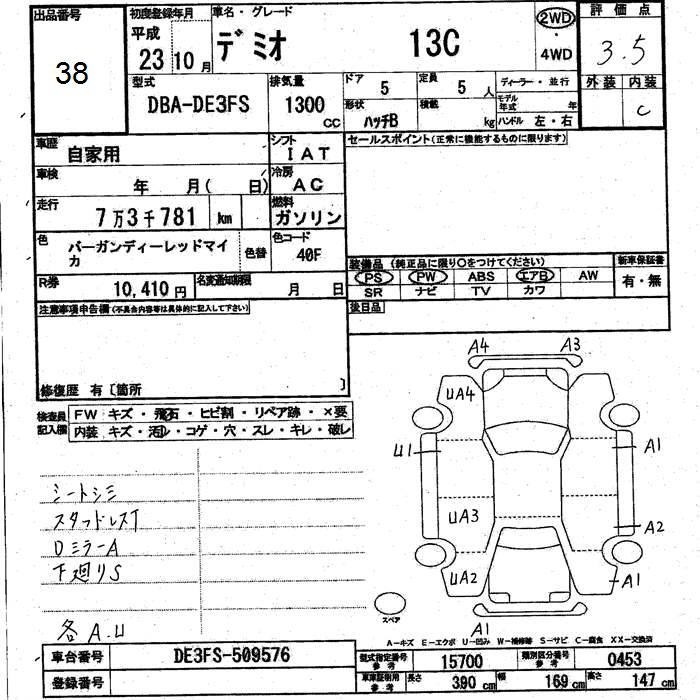 出品番号
38
初度登録年月
平成
23年 10月
車名・グレード
デミオ 13C
2WD
・
4WD
評価点
3.5
外装 内装
C
型式
DBA-DE3FS
排気量
1300 CC
ドア
5
定員
5 人
ディーラー・並行
形状
ハッチB
積載
kg
モデル年式 年
ハンドル 左・右
車歴
自家用
シフト
IAT
セールスポイント(正常に機能するものに限ります)
車検
年 月( 日)
冷房
AC
走行
7万3千781 km
燃料
ガソリン
色
バーガンディーレッドマイカ
色替
色コード
40F
R券
10,410円
名変通知期限
月 日
装備品 (純正品に限り○をつけてください)
新車保証書
PS PW ABS エアB AW
有・無
SR ナビ TV カワ
後日品
注意事項申告欄(不具合内容等は具体的に記入して下さい)
修復歴 有〔箇所 〕
検査員記入欄
FW キズ・飛石・ヒビ割・リペア跡・×要
内装 キズ・汚レ・コゲ・穴・スレ・キレ・破レ
シートシミ
スタッドレスT
DミラーA
下廻りS
各A.U
A4 A3
UA4
U1 A1
UA3 A2
UA2 A1
スペア
A1
A-キズ E-エクボ U-凹み W-補修跡 S-サビ C-腐食 XX-交換済
車台番号
DE3FS-509576
登録番号
型式指定番号参考
15700
類別区分番号参考
0453
車庫証明用参考
長さ 390 cm
幅 169 cm
高さ 147 cm